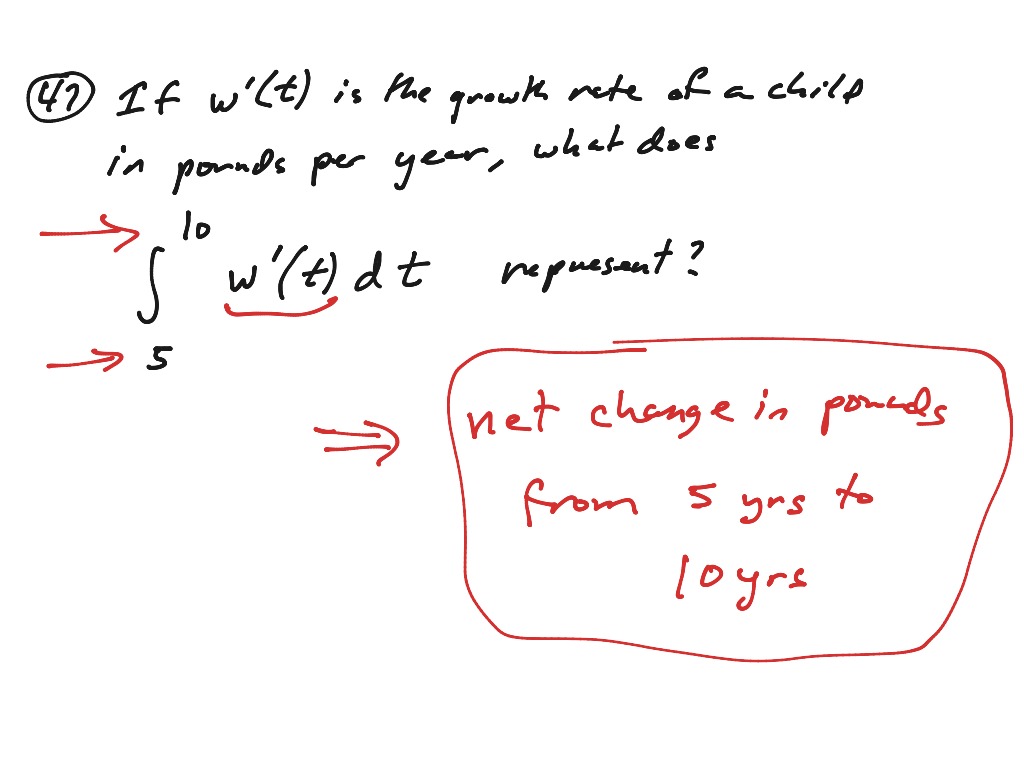 47 If w'(t) is the growth rate of a child
in pounds per year, what does
∫₅¹⁰ w'(t) dt represent?
⇒ net change in pounds
from 5 yrs to
10 yrs